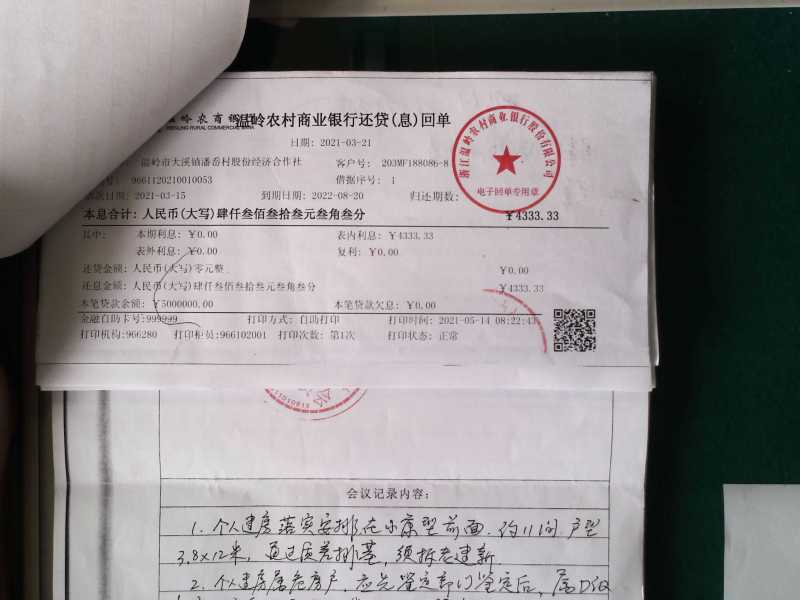 温岭农村商业银行还贷(息)回单
日期: 2021-03-21
温岭市大溪镇潘岙村股份经济合作社 客户号: 203MF188086-8
号: 9661120210010053 借据序号: 1
款日期: 2021-03-15 到期日期: 2022-08-20 归还期数:
本息合计: 人民币(大写)肆仟叁佰叁拾叁元叁角叁分 ¥4333.33
其中: 本期利息: ¥0.00 表内利息: ¥4333.33
表外利息: ¥0.00 复利: ¥0.00
还贷金额: 人民币(大写)零元整 ¥0.00
还息金额: 人民币(大写)肆仟叁佰叁拾叁元叁角叁分 ¥4333.33
本笔贷款余额: ¥5000000.00 本笔贷款欠息: ¥0.00
金融自助卡号:999999 打印方式: 自助打印 打印时间: 2021-05-14 08:22:43
打印机构:966280 打印柜员:966102001 打印次数: 第1次 打印状态: 正常
浙江温岭农村商业银行股份有限公司
电子回单专用章
会议记录内容:
1. 个人建房落实安排在小康型前面. 约11间. 户型
3.8×12米, 通过质差排基, 须拆老建新
2. 个人建房属危房户, 应先鉴定部门鉴定后, 属D级